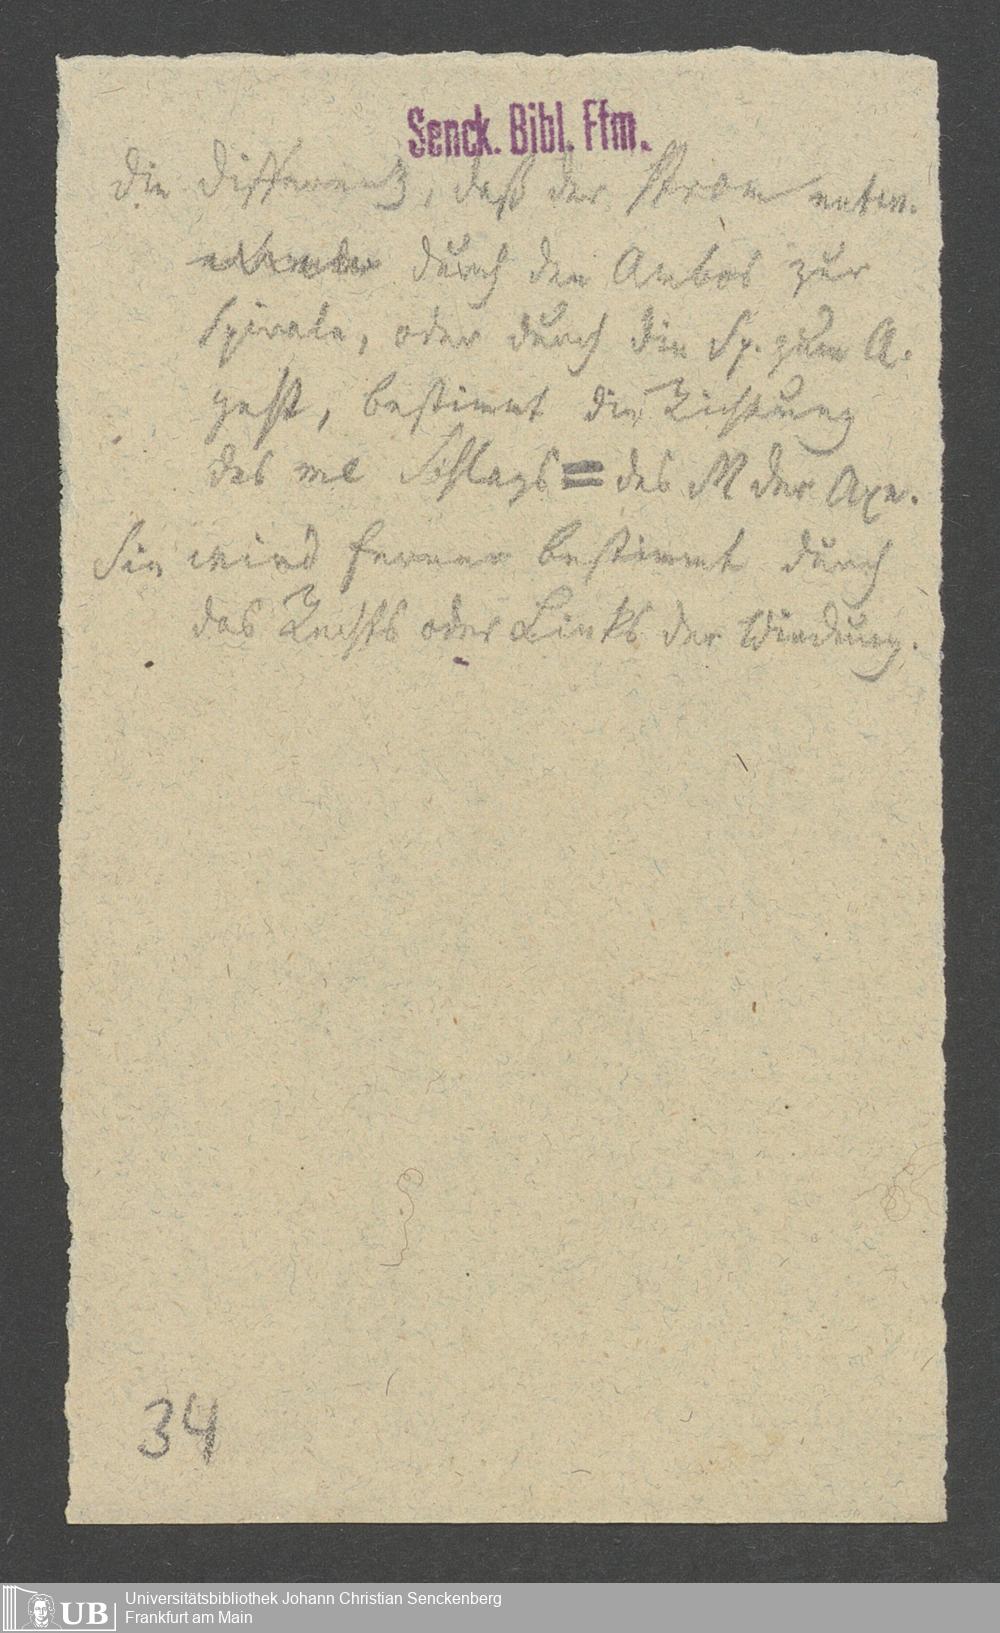 Senck. Bibl. Ffm.
Die Differenz, daß der Strom
durch den Ambos zur
Spirale, oder durch die Sp. zum A.
geht, bestimmt die Richtung
des me Schlags = des M der Axe.
Sie wird ferner bestimmt durch
das Rechts oder Links der Windung.
34
UB
Universitätsbibliothek Johann Christian Senckenberg
Frankfurt am Main